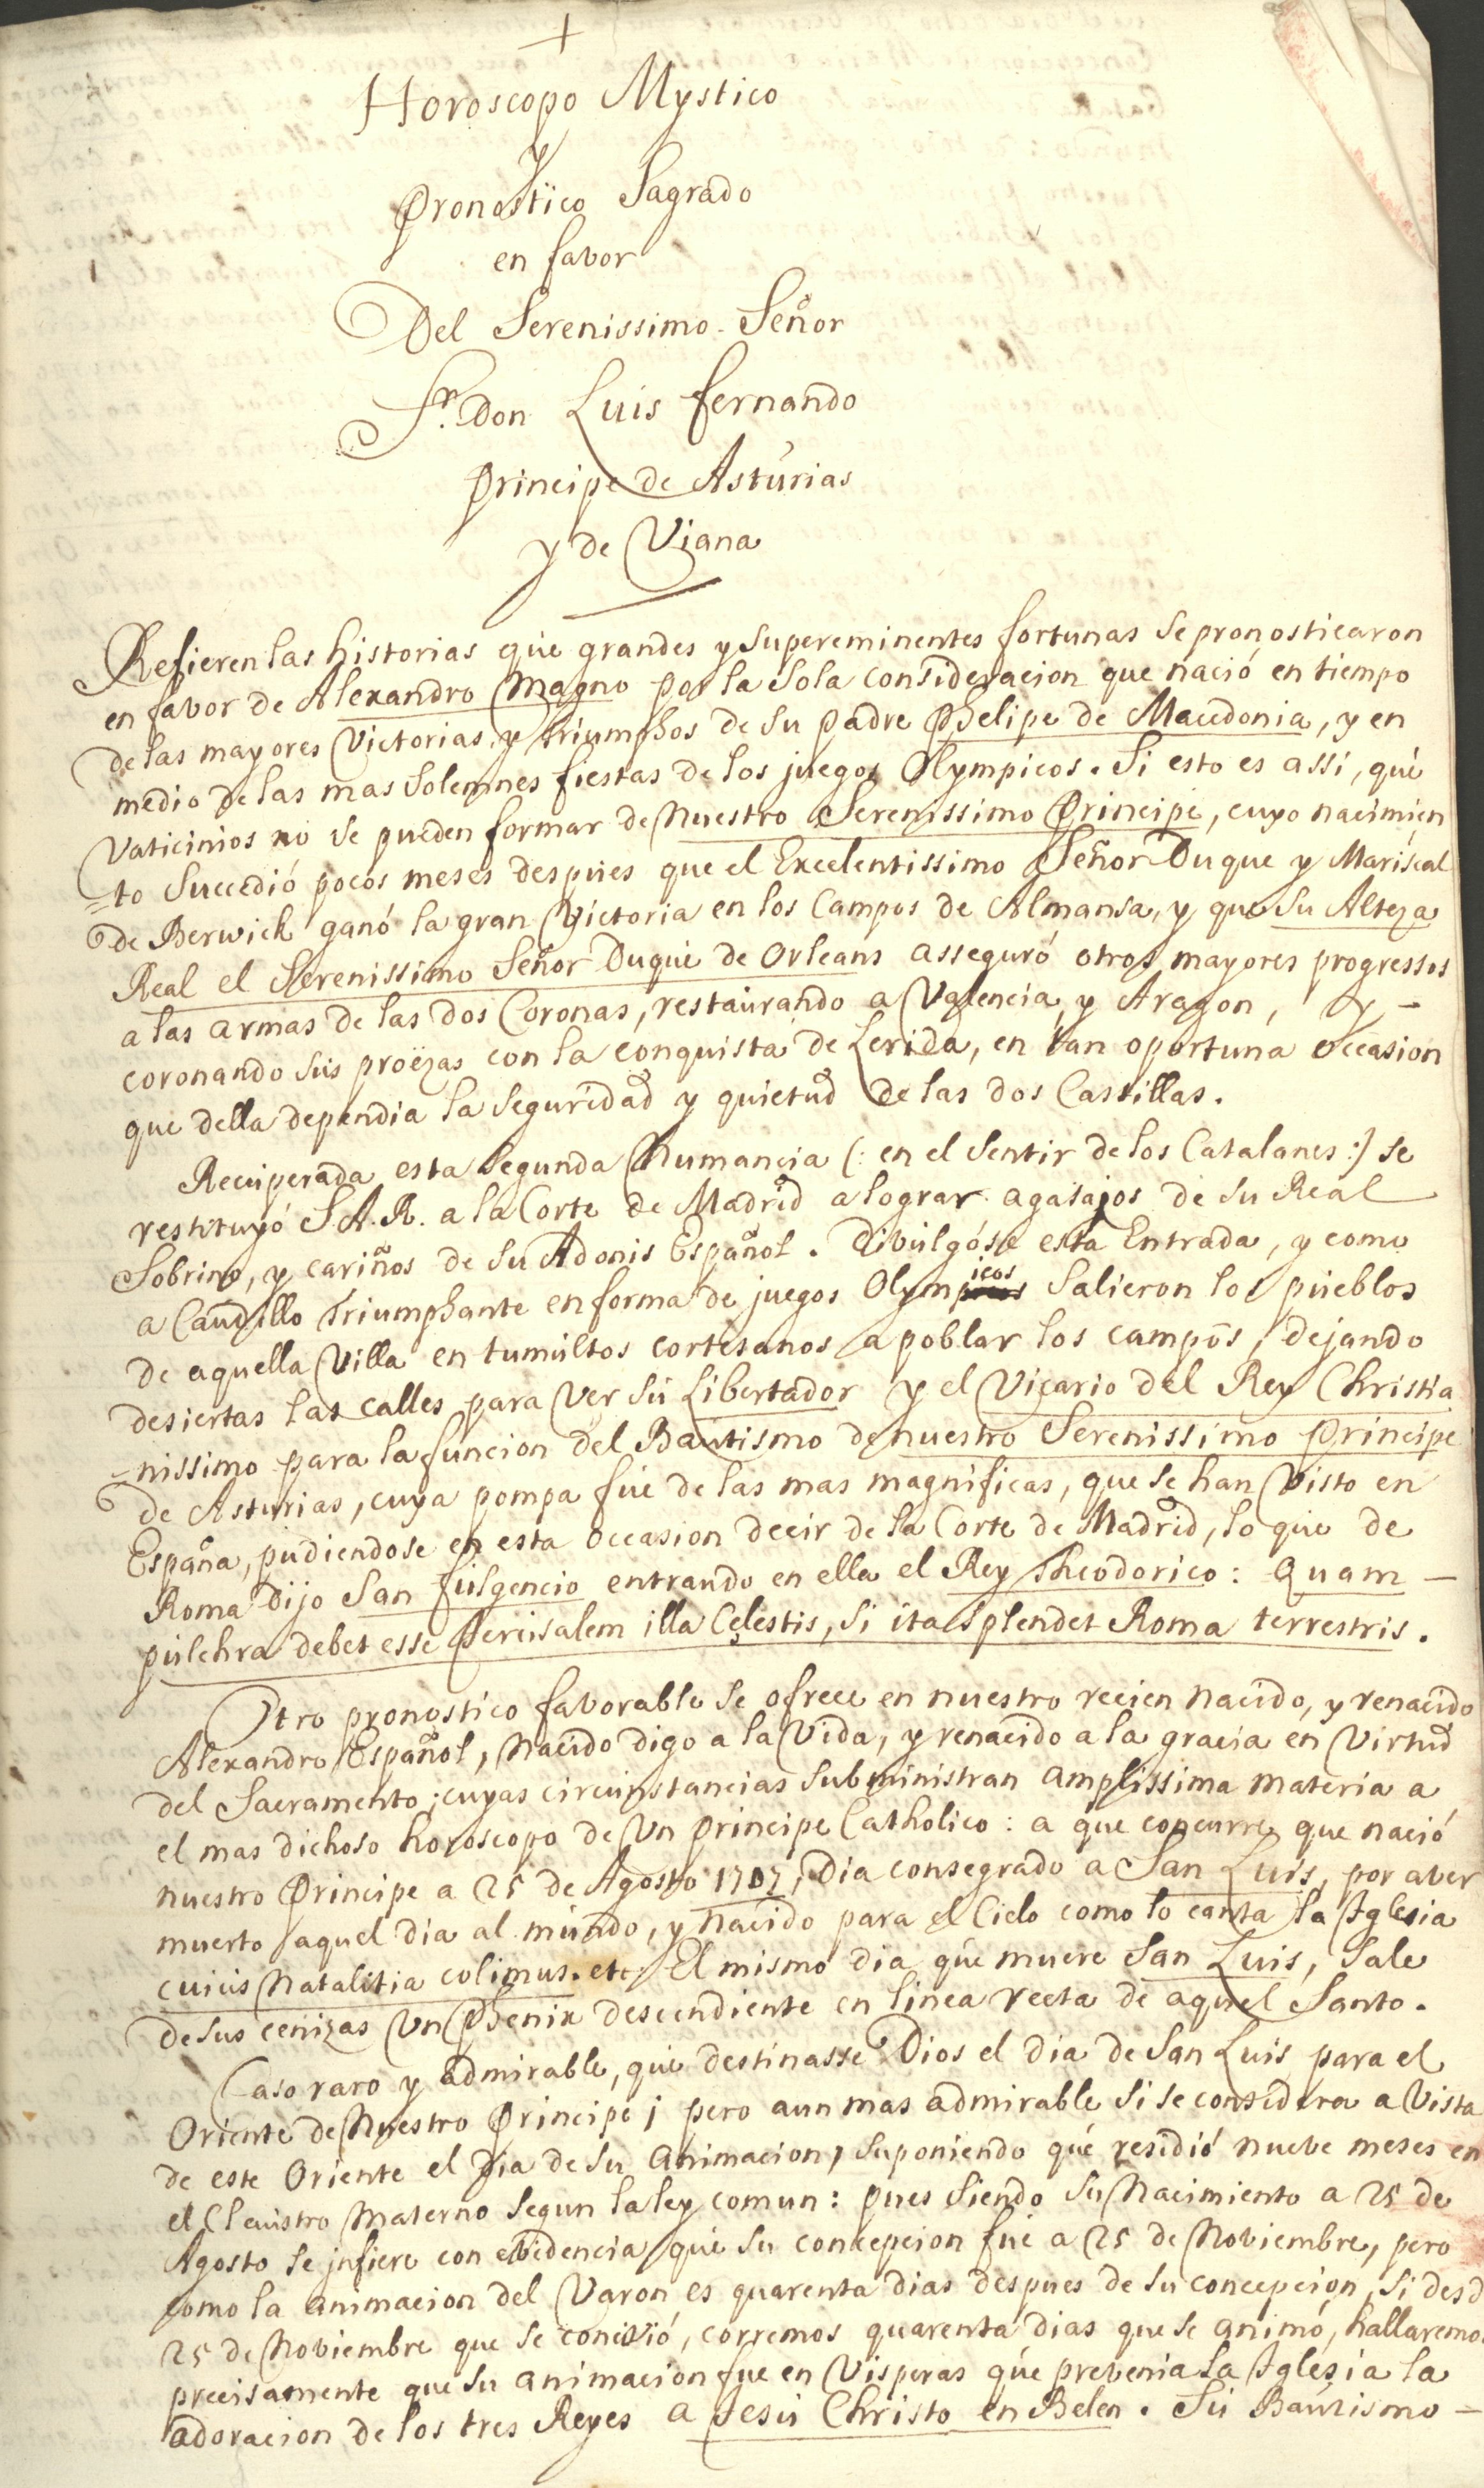 +
Horoscopo Mystico
y
Pronostico Sagrado
en favor
Del Serenissimo Señor
Sr. Don Luis fernando
Principe de Asturias
y de Viana
Refieren las historias que grandes y supereminentes fortunas se pronosticaron
en favor de Alexandro Magno por la sola consideracion que nació en tiempo
de las mayores Victorias, y triumphos de su padre Phelipe de Macedonia, y en
medio de las mas solemnes fiestas de los juegos Olympicos. Si esto es assi, què
Vaticinios no se pueden formar de Nuestro Serenissimo Principe, cuyo nacimien
=to succedió pocos meses despues que el Excelentissimo Señor Duque y Mariscal
de Berwick ganó la gran Victoria en los Campos de Almansa, y que su Alteza
Real el Serenissimo Señor Duque de Orleans asseguró otros mayores progressos
a las armas de las dos Coronas, restaurando a Valencia, y Aragon, y -
coronando sus proëzas con la conquista de Lerida, en tan oportuna occasion
que della dependia la seguridad y quietud de las dos Castillas.
Recuperada esta segunda Numancia (: en el sentir de los Catalanes :) se
restituyó S.A.R. a la Corte de Madrid a lograr agasajos de su Real
Sobrino, y cariños de su Adonis Español. Divulgóse esta Entrada, y como
a Caudillo Triumphante en forma de juegos Olympicos salieron los pueblos
de aquella Villa en tumultos cortesanos a poblar los campos, dejando
desiertas las calles para ver su Libertador y el Vicario del Rey Christia
=nissimo para la funcion del Bautismo de nuestro Serenissimo Principe
de Asturias, cuya pompa fue de las mas magnificas, que se han Visto en
España, pudiendose en esta occasion decir de la Corte de Madrid, lo que de
Roma dijo San fulgencio entrando en ella el Rey Theodorico: Quam -
pulchra debet esse Jerusalem illa Celestis, si ita splendet Roma terrestris.
Otro pronostico favorable se ofrece en nuestro recien nacido, y renacido
Alexandro Español, nacido digo a la Vida, y renacido a la gracia en Virtud
del Sacramento; cuyas circunstancias subministran amplissima materia a
el mas dichoso horoscopo de Un Principe Catholico: a que concurre que nació
nuestro Principe a 25 de Agosto 1707, Dia consegrado a San Luis, por aver
muerto aquel dia al mundo, y nacido para el Cielo como lo canta la Iglesia
cuius Natalitia colimus. etc. El mismo dia que muere San Luis, sale
de sus cenizas Un Phenix descendiente en linea recta de aquel Santo.
Caso raro y admirable, que destinasse Dios el dia de San Luis para el
Oriente de Nuestro Principe; pero aun mas admirable si se considera a Vista
de este Oriente el Dia de su animacion, suponiendo que residió nueve meses en
el Claustro Materno segun la ley comun: pues siendo su Nacimiento a 25 de
Agosto se infiere con evidencia que su concepcion fue a 25 de Noviembre, pero
como la animacion del Varon es quarenta dias despues de su concepcion, si desd
25 de Noviembre que se concivió, corremos quarenta dias que se animó, hallaremos
precisamente que su animacion fue en Visperas que prevenia la Iglesia la
adoracion de los tres Reyes a Jesu Christo en Belen. Su Bautismo -